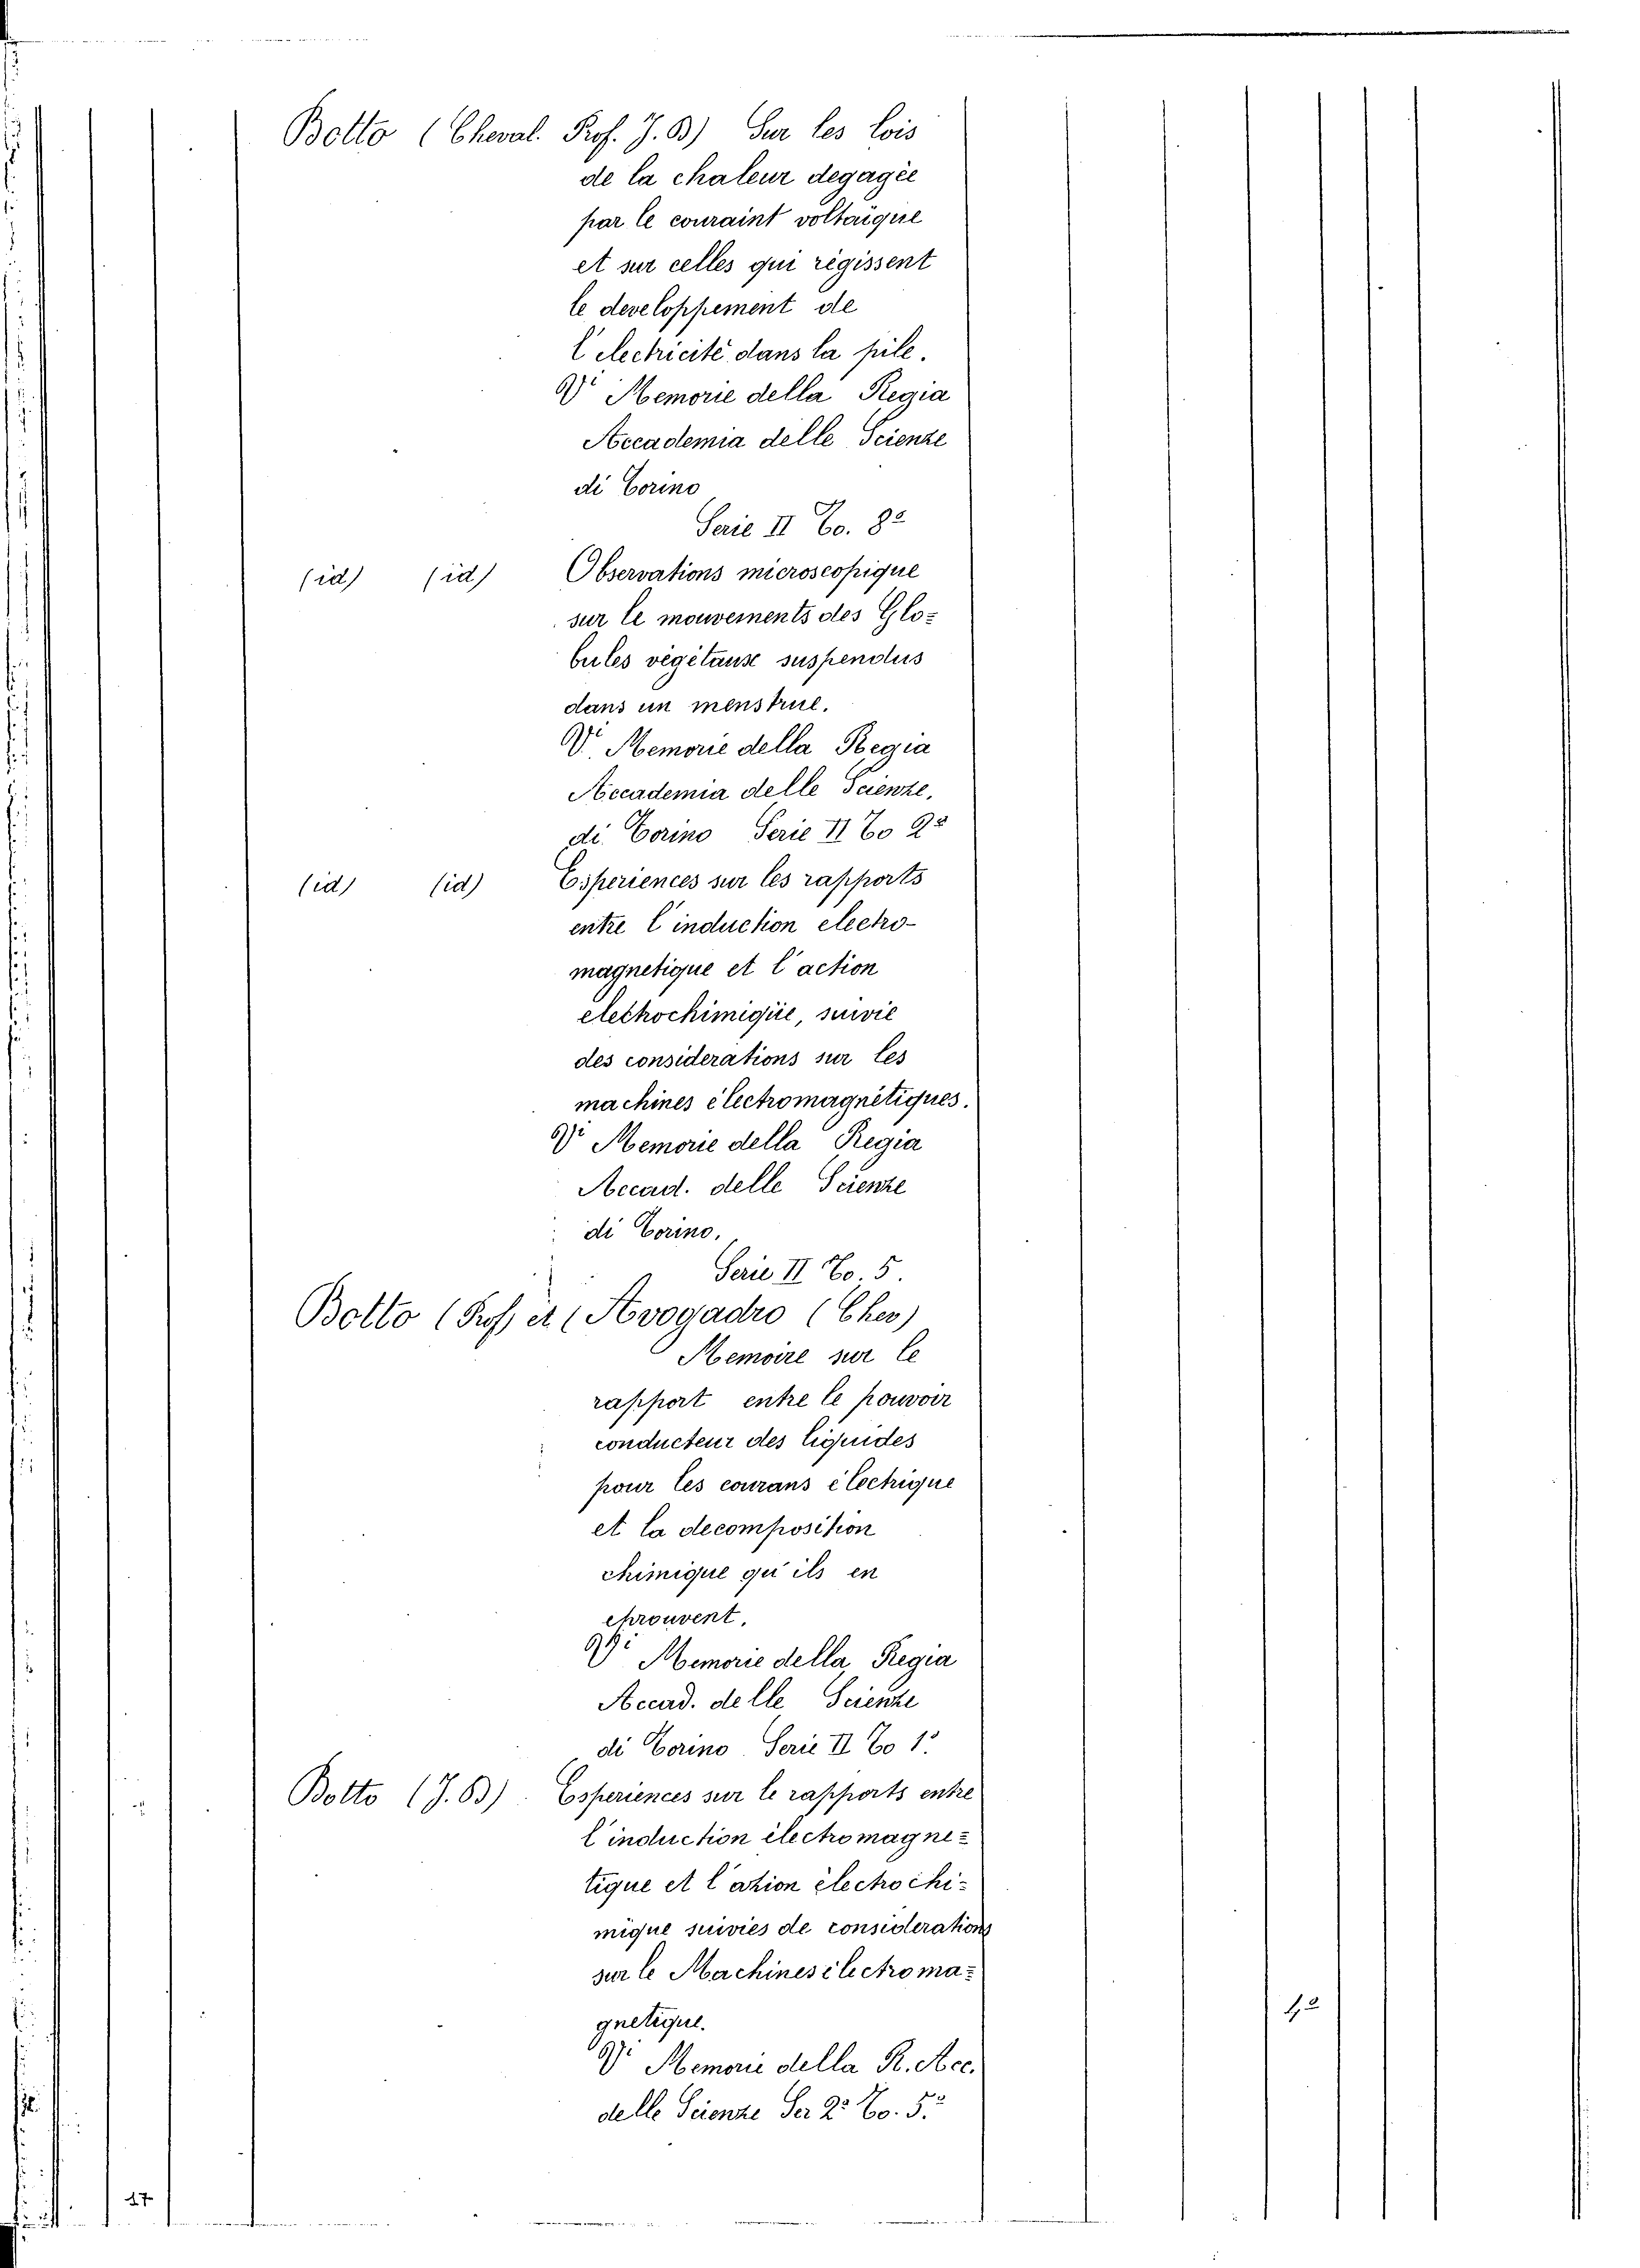 Botto (Cheval. Prof. J. B) Sur les lois
de la chaleur degagèe
par le couraint voltaïque
et sur celles qui règissent
le developpement de
l'electricitè dans la pile.
Vi Memorie della Regia
Accademia delle Scienze
di Torino
Serie II To. 8º
(id) (id) Observations microscopique
sur le mouvements des Glo=
bules vègètause suspendus
dans un menstrue.
Vi. Memorie della Regia
Accademia delle Scienze,
di Torino Serie II To 2º
(id) (id) Esperiences sur les rapports
entre l'induction electro-
magnetique et l'action
elechochimique, suivie
des considerations sur les
machines èlectromagnètiques.
Vi Memorie della Regia
Accad. delle Scienze
di Torino.
Serie II To. 5.
Botto (Prof) et (Avogadro (Chev)
Memoire sur le
rapport entre le pouvoir
conducteur des liquides
pour les courans èlectrique
et la decomposition
chimique qu'ils en
eprouvent.
Vi Memorie della Regia
Accad. delle Scienze
di Torino Serie II To 1º.
Botto (J. B). Esperiences sur le rapports entre
l'induction èlectromagne=
tique et l'ation èlectrochi=
mique suivies de considerations
sur le Machines èlectroma=
gnetique.
Vi Memorie della R. Acc.
delle Scienze Ser 2º To. 5º
42
47